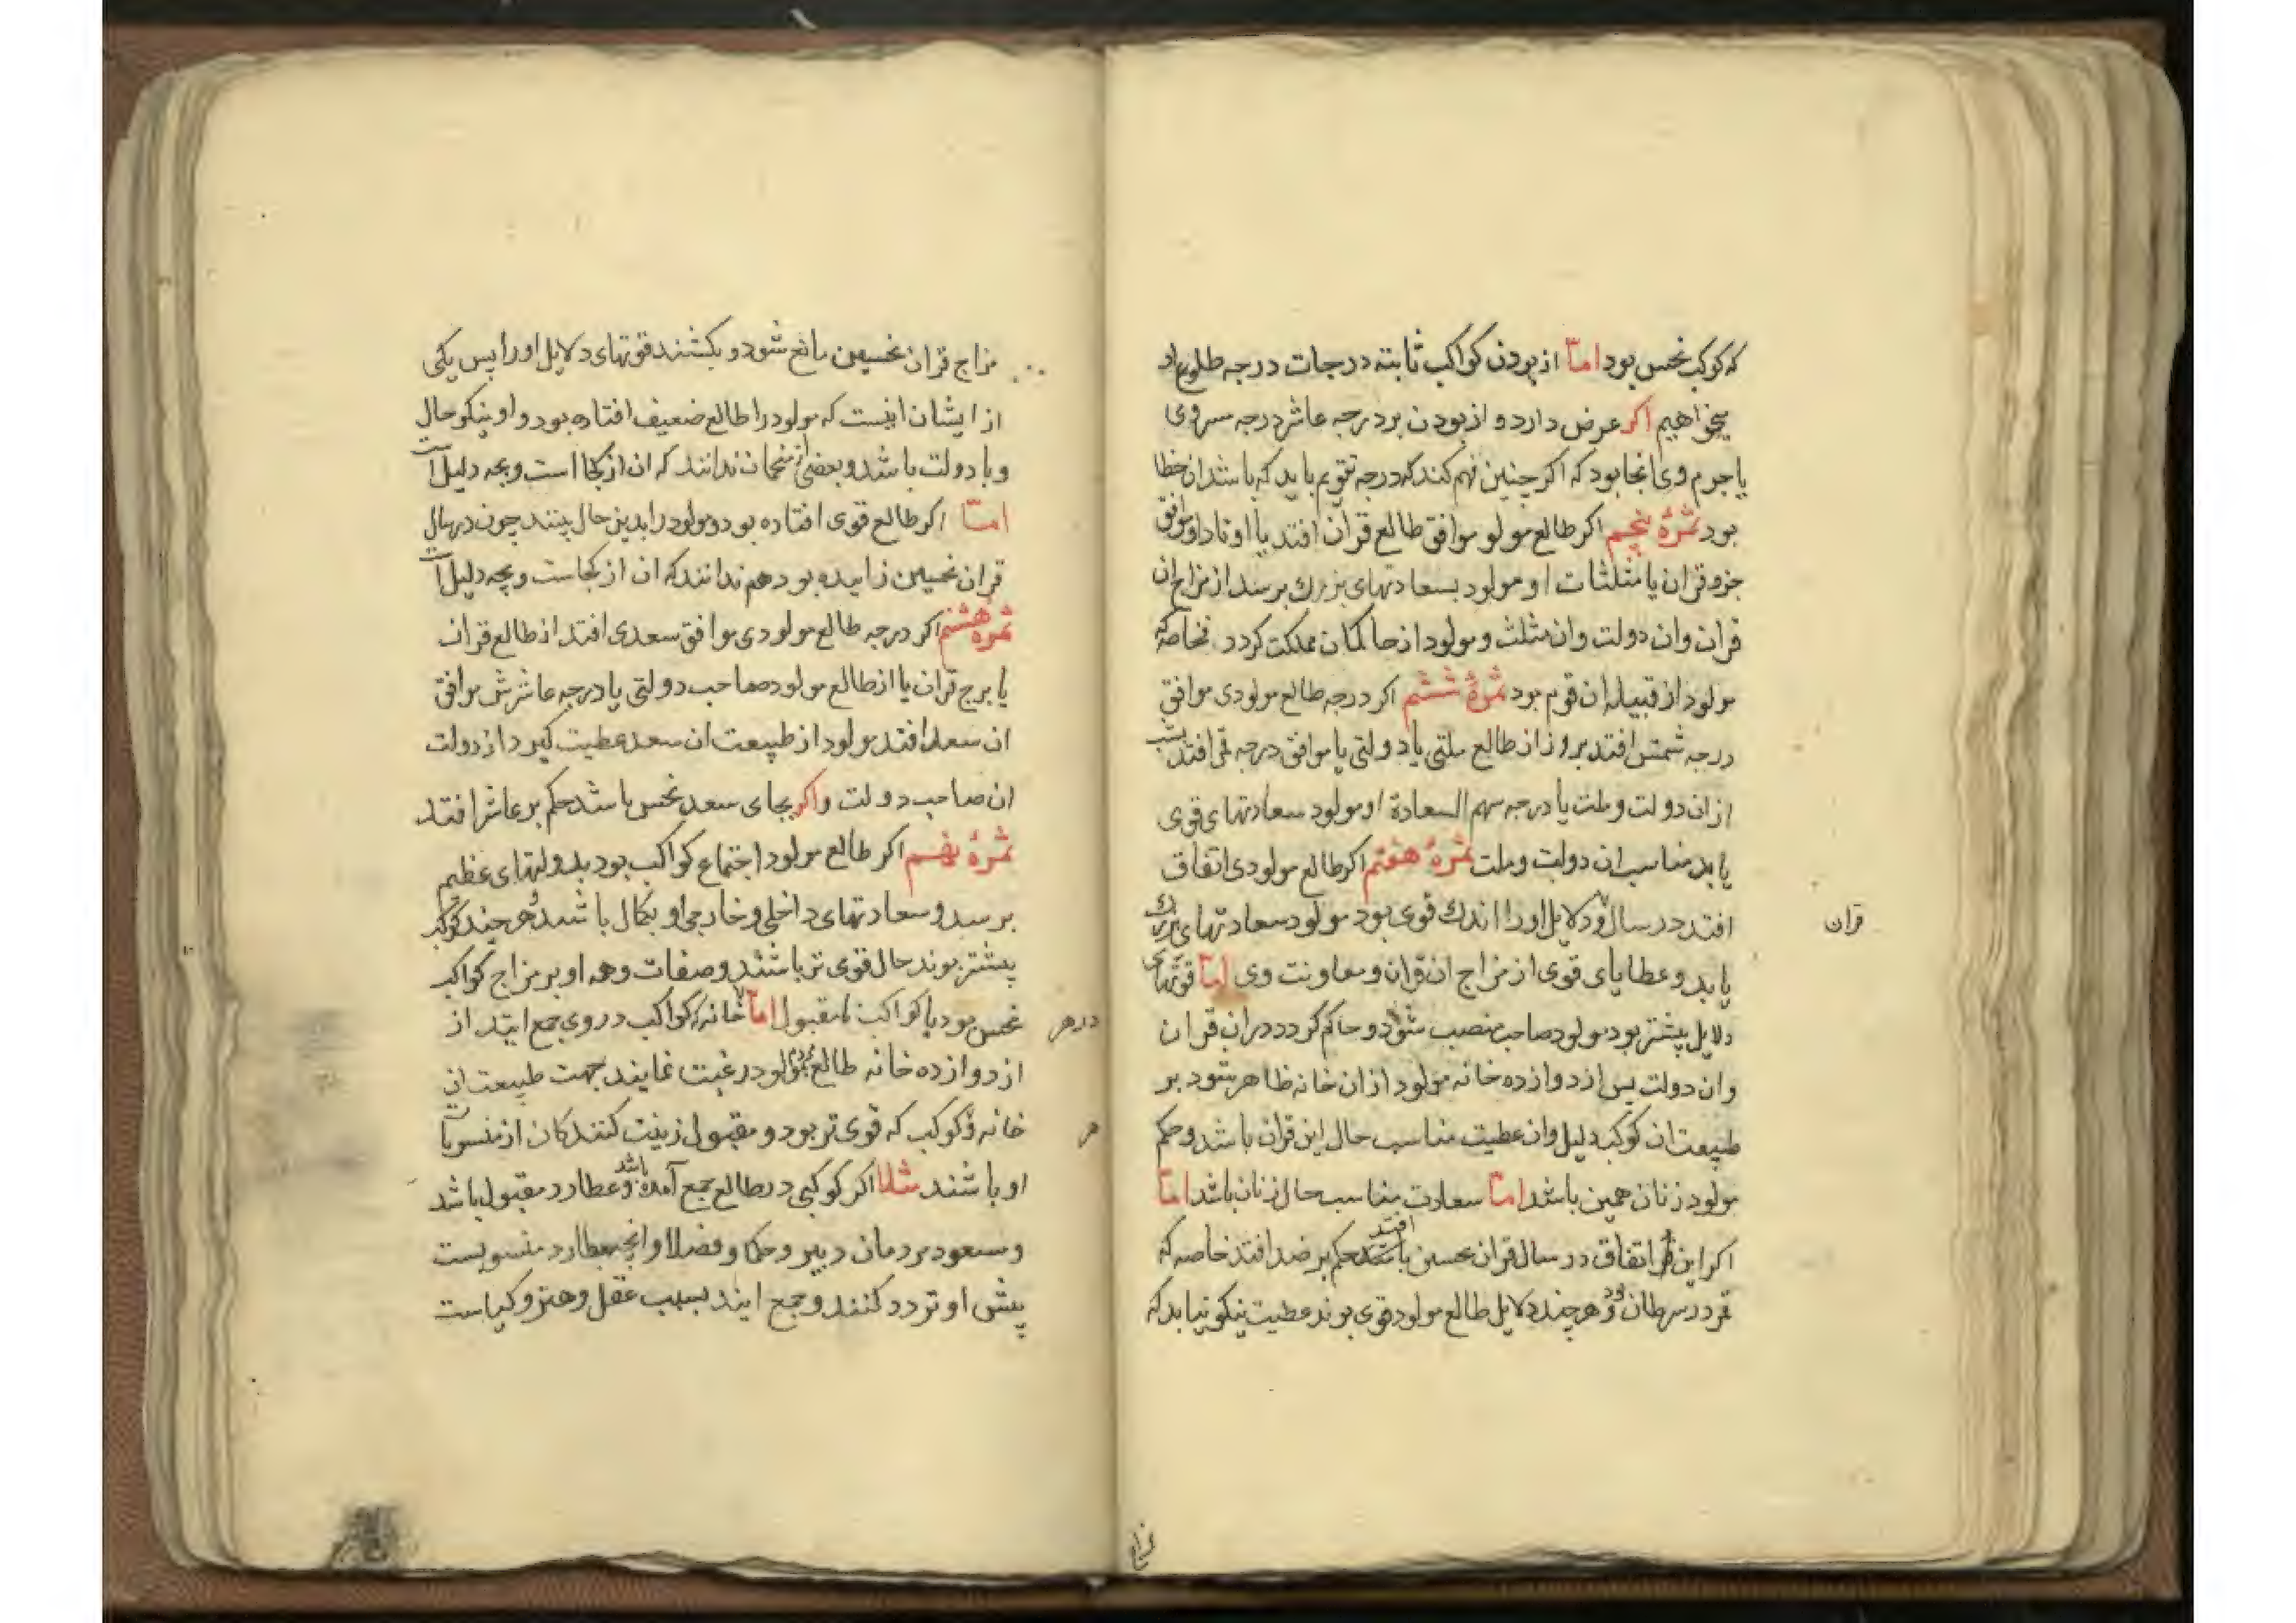 که کوکب نحس بود اما از بودن کواکب ثابته در جات درجه طلوع او
میخواهیم اکر عرض دارد و از بودن بر درجه عاشر درجه سر وی
یا جرم وی انجا بود که اکر چنین فهم کند که درجه تقویم باید که باشد ان خطا
بود ثمرهٔ پنجم اکر طالع مولو موافق طالع قران افتد یا اوتاد او موافق
جزو قران یا مثلثات او مولود بسعادتهای بزرك برسد از مزاج ان
قران وان دولت وان مثلث و مولود از حاکمان مملکت کردد خاصه که
مولود از قبیله ان قوم بود ثمرهٔ ششم اکر درجه طالع مولودی موافق
درجه شمس افتد بروز از طالع ملتی یا دولتی یا موافق درجه قمر افتد بشب
از ان دولت و ملت یا درجه سهم السعادة او مولود سعادتهای قوی
یابد مناسب ان دولت و ملت ثمرهٔ هفتم اکر طالع مولودی اتفاق
افتد در سال و دلایل او را اندك قوی بود مولود سعادتهای بزرك
قران
یابد و عطایای قوی از مزاج ان قران و معاونت وی اما قوتهای
دلایل بیشتر بود مولود صاحب منصب شود و حاکم کردد در ان قران
وان دولت پس از دوازده خانه مولود از ان خانه ظاهر شود بر
طبیعت ان کوکب دلیل وان عطیت مناسب حال این قران باشد و حکم
مولود زنان همین باشد اما سعادت مناسب حال زنان باشد اما
اکر این اتفاق در سال قران نحسین افتد حکم بر ضد افتد خاصه که
قمر در سرطان بود و هر چند دلایل طالع مولود قوی بوند عطیت نیکو نیابد که
مزاج
مزاج قران نحسین مانع شود و بکشند قوتهای دلایل او را پس یکی
از ایشان اینست که مولود را طالع ضعیف افتاده بود و او نیکو حال
و با دولت باشد و بعضی از منجمان ندانند که ان از کجا است و بچه دلیل است
اما اکر طالع قوی افتاده بود و مولود را بدین حال بینند چون در سال
قران نحسین زاییده بود هم ندانند که ان از کجاست و بچه دلیل است
ثمرهٔ هشتم اکر درجه طالع مولودی موافق سعدی افتد از طالع قران
یا برج قران یا از طالع مولود صاحب دولتی یا درجه عاشرش موافق
ان سعد افتد مولود از طبیعت ان سعد عطیت کیرد از دولت
ان صاحب دولت و اکر بجای سعد نحس باشد حکم بر عاشر افتد
ثمرهٔ نهم اکر طالع مولود اجتماع کواکب بود بدولتهای عظیم
برسد و سعادتهای داخلی و خارجی او بکمال باشد و هر چند کوکب
بیشتر بوند حال قوی تر باشند و صفات وهمه او بر مزاج کواکب
نحس بود یا کواکب نامقبول اما خانه که کواکب در وی جمع ایند از
در هر
از دوازده خانه طالع مولود مردم رغبت نمایند جهت طبیعت ان
خانه و کوکب که قوی تر بود و مقبول زینت کنندکان از منسوبات
هر
او باشند مثلا اکر کوکبی در طالع جمع آمده باشد و عطارد مقبول باشد
و مسعود مردمان دبیر و حکما و فضلا و انچه بعطارد منسوبست
پیش او تردد کنند و جمع ایند بسبب عقل و هنر و کیاست